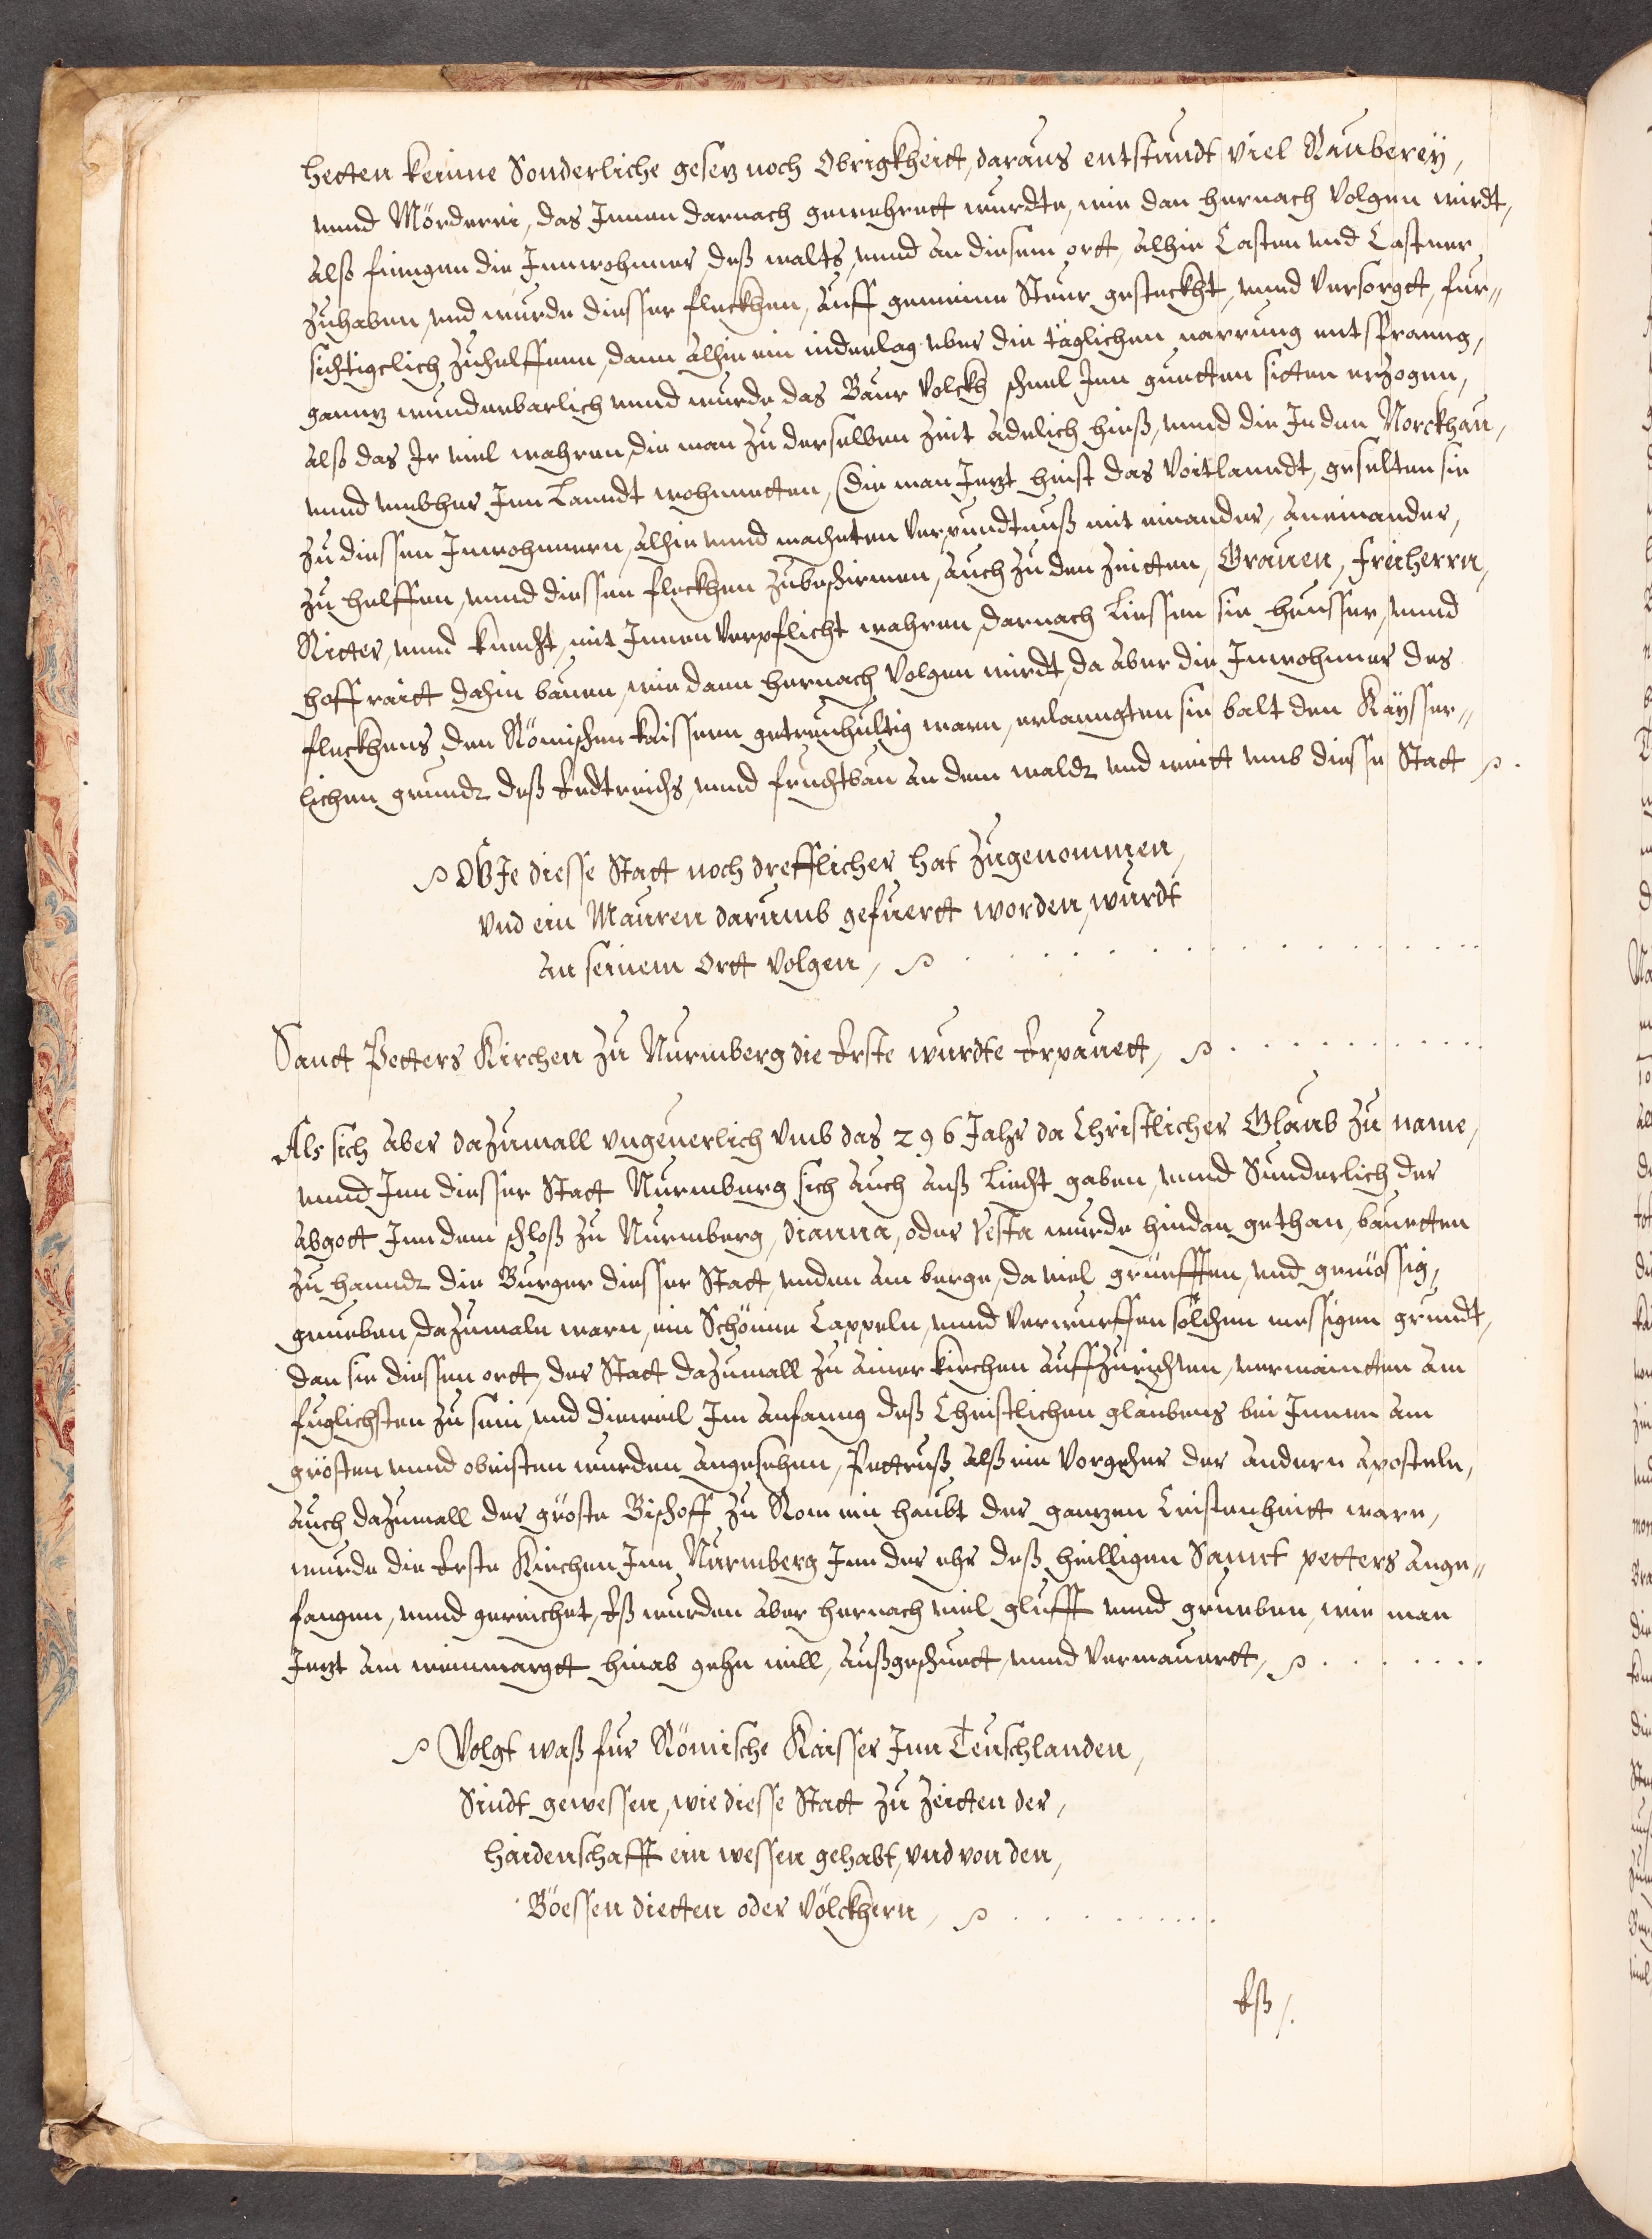 hetten keinne Sonderliche gesetz noch Obrigkheitt, daraus entstundt viel Rauberey,
vnnd Mörderei, das Innen darnach gewehrett wurdte, wie dan hernach Volgen wirdt,
Alß fiengen die Innwohnner deß walts, vnnd An diesem ortt, Alhie Casten vnd Castner
zuhaben, vnd wurde diesser fleckhen, Auff gemeinne Steur gesteckht, vnnd Versorgtt, fur-
sichtigclich zuhelffenn, dann Alhie ein niderlag vber die täglichen narrung entsprenng,
ganntz wunderbarlich vnnd wurde das Baur Volckh schnel Inn guetten sitten erzogen,
Alß das Ir viel wahren, die man zu derselben Zeit Adelich hieß, vnnd die In den Norckhau,
vnnd vmbher Inn Lanndt wohnnetten, (die man Jetzt heist das Voitlanndt, geselten sie
zu diessen Inwohnnern, Alhie vnnd machten Verpundtnuß mit einander, Aneinander,
zu helffen, vnnd diessen fleckhen zubeschirmen, Auch zu den Zeitten, Grauen, freiherrn,
Ritter, vnnd knecht, mit Innen Verpflicht wahren, darnach Liessen sie heusser, vnnd
hoffraitt dahin bauen, wie dann hernach Volgen wirdt, da Aber die Inwohnner des
fleckhens, den Römischen kaissern getreuhultig warn, erlanngten sie balt den Käysser-
lichen grundt deß Erdtreichs, vnnd fruchtbau An dem waldt vnd weitt vmb diesse Statt
Wie diesse Statt noch drefflicher hat zugenommen,
Vnd ein Mauren darumb gefuertt worden, wurdt
An seinem Ortt Volgen,
Sanct Petters Kirchen zu Nurmberg die Erste wurdte Erpauett,
Als sich Aber dazumall vngeuerlich Vmb das 296 Jahr da Christlicher Glaub zu name,
vnnd Inn diesser Statt Nurmberg sich Auch Anß Liecht gaben, vnnd Sunderlich der
Abgott Inn dem schloß zu Nurmberg, dianna, oder Vesta wurde hindan gethan, bauetten
zu hanndt die Burger diesser Statt, vnden Am berge, da viel grüefften, vnd gemössig,
grueben, dazumaln warn, ein Schönne Cappeln, vnnd Verwurffen solchen messigen grundt,
dan sie diessen ortt, der Statt dazumall zu Ainer kirchen Auffzurichten, vermaintten Am
fuglichsten zu sein, vnd dieweil Im Anfanng deß Christlichen glaubens bei Innen Am
grösten vnnd obristen wurden Angesehen, Pettruß Alß ein Vorgeher der Andern Aposteln,
Auch dazumall der gröste Bischoff zu Rom ein haubt der gantzen Cristenheitt ware,
wurde die Erste Kirchen Inn Nurmberg Inn der ehr deß heilligen Sannct petters Ange-
fangen, vnnd gereichet, Eß wurden Aber hernach viel glufft vnnd grueben, wie man
Jetzt Am weinmargtt hinab gehn will, Außgeschuett, vnnd Vermauertt,
Volgt waß fur Römische Kaisser Inn Teuschlanden,
Sindt gewessen, wie diesse Statt zu Zeitten der,
haidenschafft ein wessen gehabt, vnd von den,
Böessen dietten oder Völckhern,
Eß